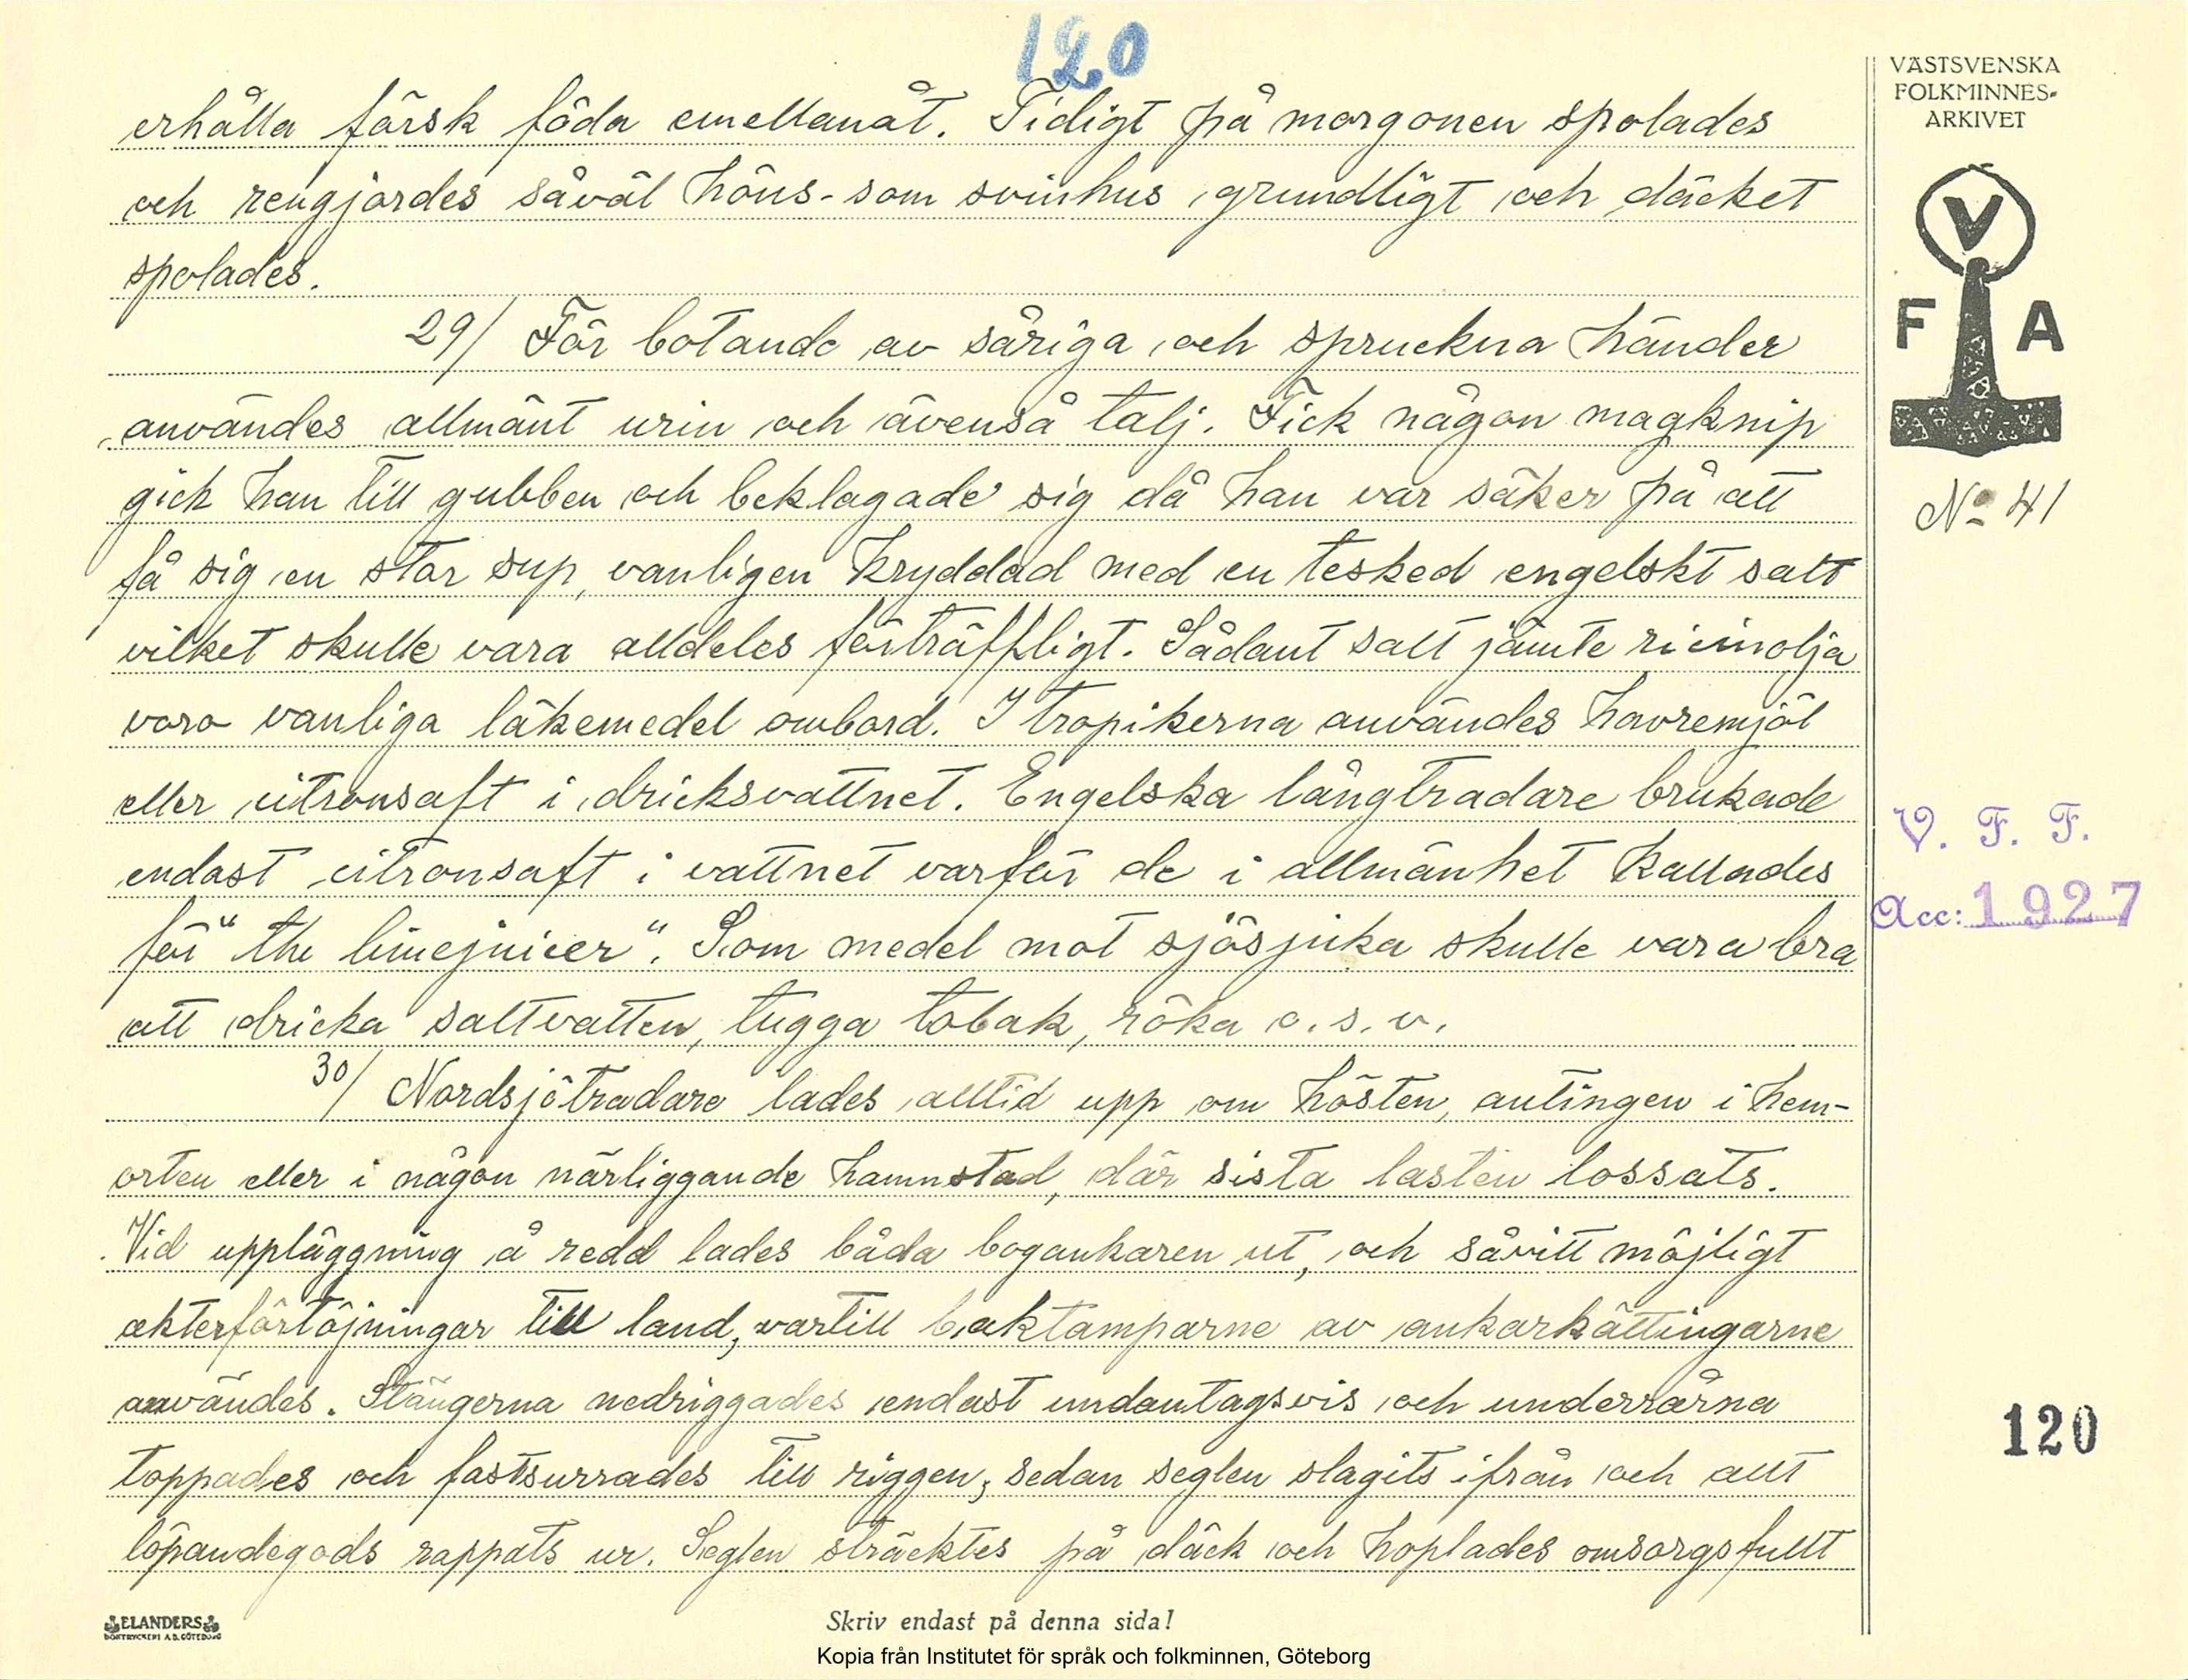 120
erhålla färsk föda emellanåt. Tidigt på morgonen spolades
och rengjordes såväl höns- som svinhus grundligt och däcket
spolades.
29/ För botande av såriga och spruckna händer
användes allmänt urin och ävenså talj. Fick någon magknip
gick han till gubben och beklagade sig då han var säker på att
få sig en stor sup, vanligen kryddad med en tesked engelskt salt
vilket skulle vara alldeles förträffligt. Sådant salt jämte ricinolja
voro vanliga läkemedel ombord. I tropikerna användes havremjöl
eller citronsaft i dricksvattnet. Engelska långtradare brukade
endast citronsaft i vattnet varför de i allmänhet kallades
för "the limejuicer". Som medel mot sjösjuka skulle vara bra
att dricka saltvatten, tugga tobak, röka o.s.v.
30/ Nordsjötradare lades alltid upp om hösten, antingen i hem-
orten eller i någon närliggande hamnstad, där sista lasten lossats.
Vid uppläggning å redd lades båda bogankaren ut, och såvitt möjligt
akterförtöjningar till land, vartill baktamparne av ankarkättingarne
användes. Stängerna nedriggades endast undantagsvis och underrårna
toppades och fastsurrades till riggen, sedan seglen slagits ifrån och allt
löpandegods rappats ur. Seglen sträcktes på däck och hoplades omsorgsfullt
VÄSTSVENSKA
FOLKMINNES-
ARKIVET
V
F A
No 41
V. F. F.
Acc: 1927
120
ELANDERS
BOKTRYCKERI A.B. GÖTEBORG
Skriv endast på denna sida!
Kopia från Institutet för språk och folkminnen, Göteborg